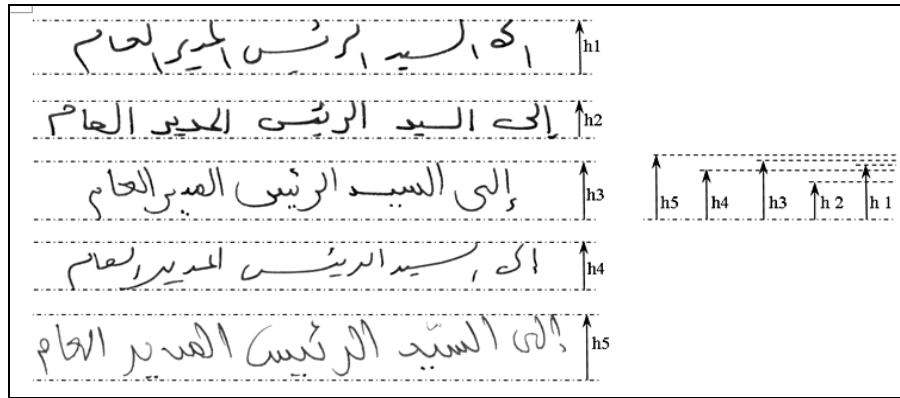 الى السيد الرئيس المدير العام h1
إلى السيد الرئيس المدير العام h2
إلى السيد الرئيس المدير العام h3
الى السيد الرئيس المدير العام h4
إلى السيّد الرئيس المدير العام h5
h5 h4 h3 h 2 h 1